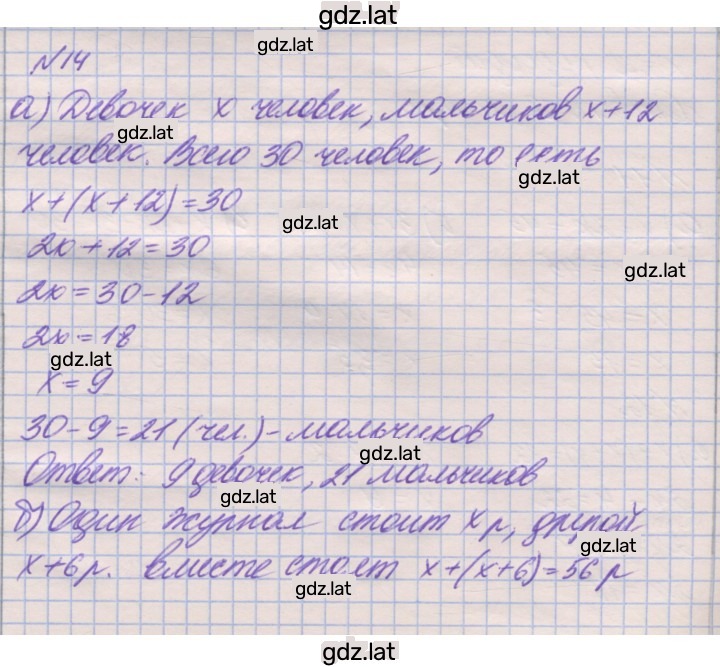 gdz.lat
gdz.lat
№14
а) Девочек x человек, мальчиков x+12
gdz.lat
человек. Всего 30 человек, то есть
gdz.lat
x+(x+12)=30
gdz.lat
2x+12=30
gdz.lat
2x=30-12
2x=18
gdz.lat
x=9
30-9=21 (чел.)- мальчиков
gdz.lat
Ответ: 9 девочек, 21 мальчиков
gdz.lat
б) Один журнал стоит x р, другой
gdz.lat
x+6 р. вместе стоят x+(x+6)=56 р
gdz.lat
gdz.lat